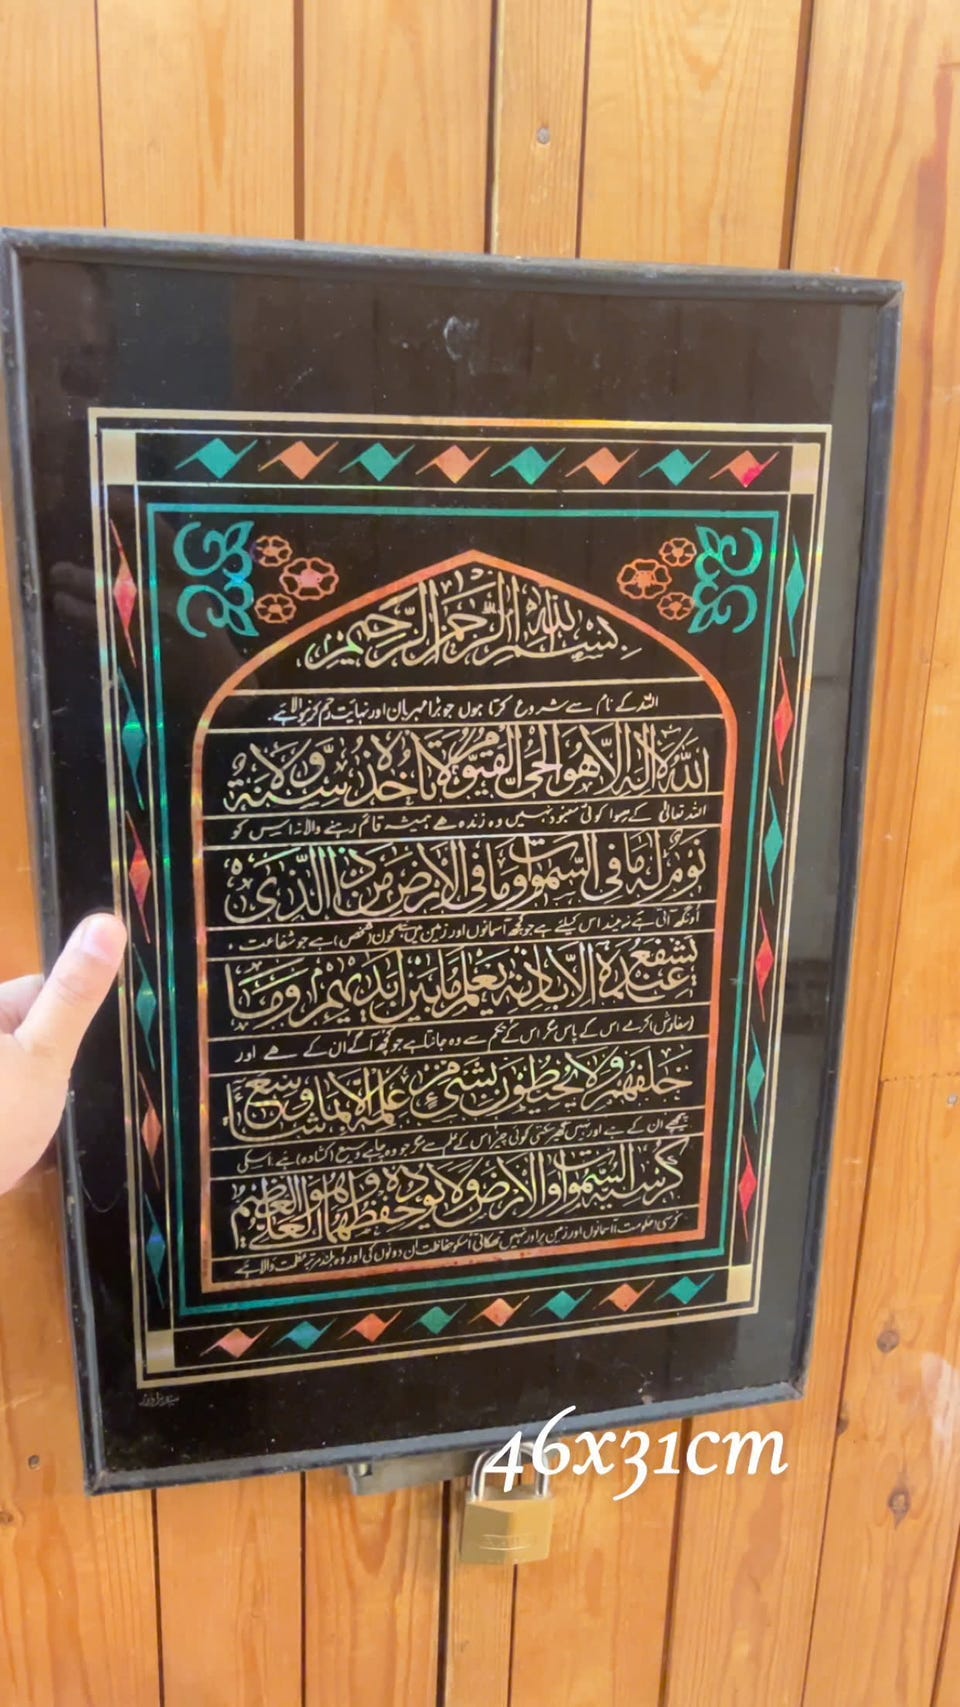 بِسْمِ اللهِ الرَّحْمٰنِ الرَّحِيْمِ
اللہ کے نام سے شروع کرتا ہوں جو بڑا مہربان اور نہایت رحم کرنیوالا ہے.
اَللّٰهُ لَا اِلٰهَ اِلَّا هُوَ الْحَيُّ الْقَيُّوْمُ لَا تَاْخُذُهٗ سِنَةٌ وَّلَا
اللہ تعالیٰ کے سوا کوئی معبود نہیں وہ زندہ ھے ہمیشہ قائم رہنے والا نہ اسیس کو
نَوْمٌ لَهٗ مَا فِي السَّمٰوٰتِ وَمَا فِي الْاَرْضِ مَنْ ذَا الَّذِيْ
اونگھ آتی ہے نہ نیند اس کیلئے ہے جو کچھ آسمانوں اور زمین میں ہے کون (شخص) ہے جو شفاعت
يَشْفَعُ عِنْدَهٗ اِلَّا بِاِذْنِهٖ يَعْلَمُ مَا بَيْنَ اَيْدِيْهِمْ وَمَا
(سفارش) کرے اس کے پاس مگر اس کے حکم سے وہ جانتا ہے جو کچھ آگے ان کے ھے اور
خَلْفَهُمْ وَلَا يُحِيْطُوْنَ بِشَيْءٍ مِّنْ عِلْمِهٖ اِلَّا بِمَا شَاءَ وَسِعَ
پیچھے ان کے ہے اور نہیں گھیر سکتی کوئی چیز اس کے علم سے مگر جو وہ چاہے وسیع (کشادہ) ہے اسکی
كُرْسِيُّهُ السَّمٰوٰتِ وَالْاَرْضَ وَلَا يَئُوْدُهٗ حِفْظُهُمَا وَهُوَ الْعَلِيُّ الْعَظِيْمُ
کرسی (حکومت) آسمانوں اور زمین پر اور نہیں تھکاتی اسکو حفاظت ان دونوں کی اور وہ بلند مرتبہ عظمت والا ہے
46x31cm